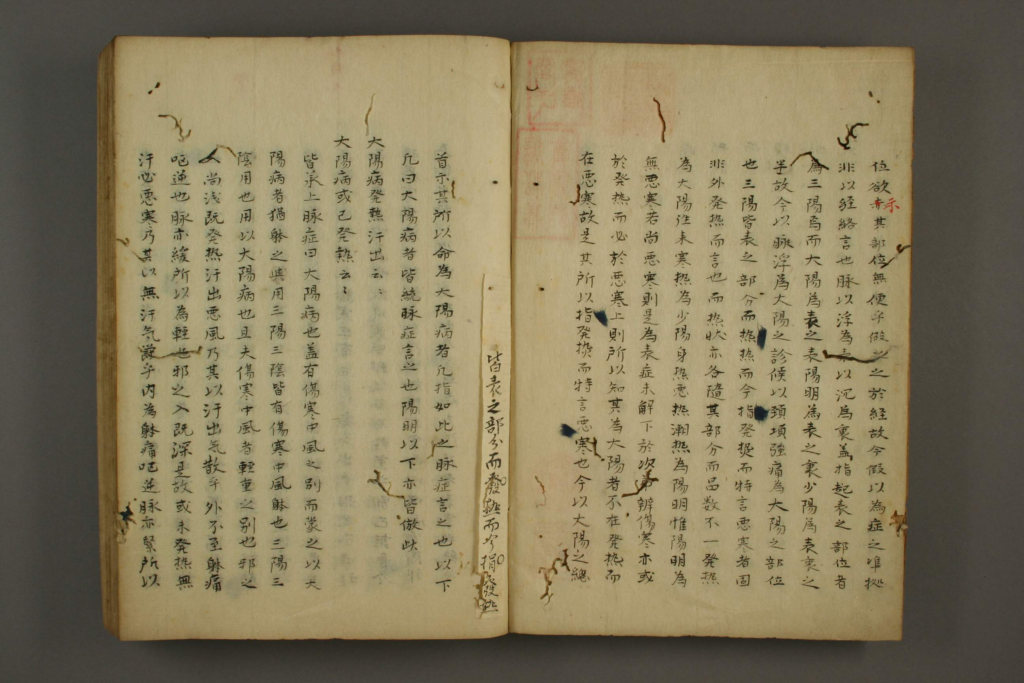 位欲示其部位無便乎假之之於経故今假以為症之準拠
非以経絡言也脉以浮為表以沉為裏盖指起表之部位者
為三陽焉而大陽為表之表陽明為表之裏少陽為表裏之
半故今以脉浮為大陽之診候以頭項強痛為大陽之部位
也三陽皆表之部分而熱熱而今指発熱而特言悪寒者固
非外発熱而言也而熱状亦各隨其部分而呂数不一発熱
為大陽往来寒熱為少陽身熱悪熱潮熱為陽明惟陽明為
無悪寒若尚悪寒則是為表症未解下於次章辨傷寒亦或
於発熱而必於悪寒上則所以知其為大陽者不在発熱而
在悪寒故是其所以指発熱而特言悪寒也今以大陽之総
皆表之部分而發熱而今指發熱
首示其所以命為大陽病者凡指如此之脉症言之也以下
凡曰大陽病者皆統脉症言之也陽明以下亦皆倣此
大陽病発熱汗出云云
大陽病或已発熱云云
皆承上脉症曰大陽病也盖有傷寒中風之別而蒙之以大
陽病者猶躰之與用三陽三陰皆有傷寒中風躰也三陽三
陰用也用以大陽病也且夫傷寒中風者軽重之別也邪之
人尚浅既発熱汗出悪風乃其以汗出気散乎外不至躰痛
呕逆也脉亦緩所以為軽也邪之入既深是故或未発熱無
汗必悪寒乃其以無汗気激乎内為躰痛呕逆脉亦緊所以